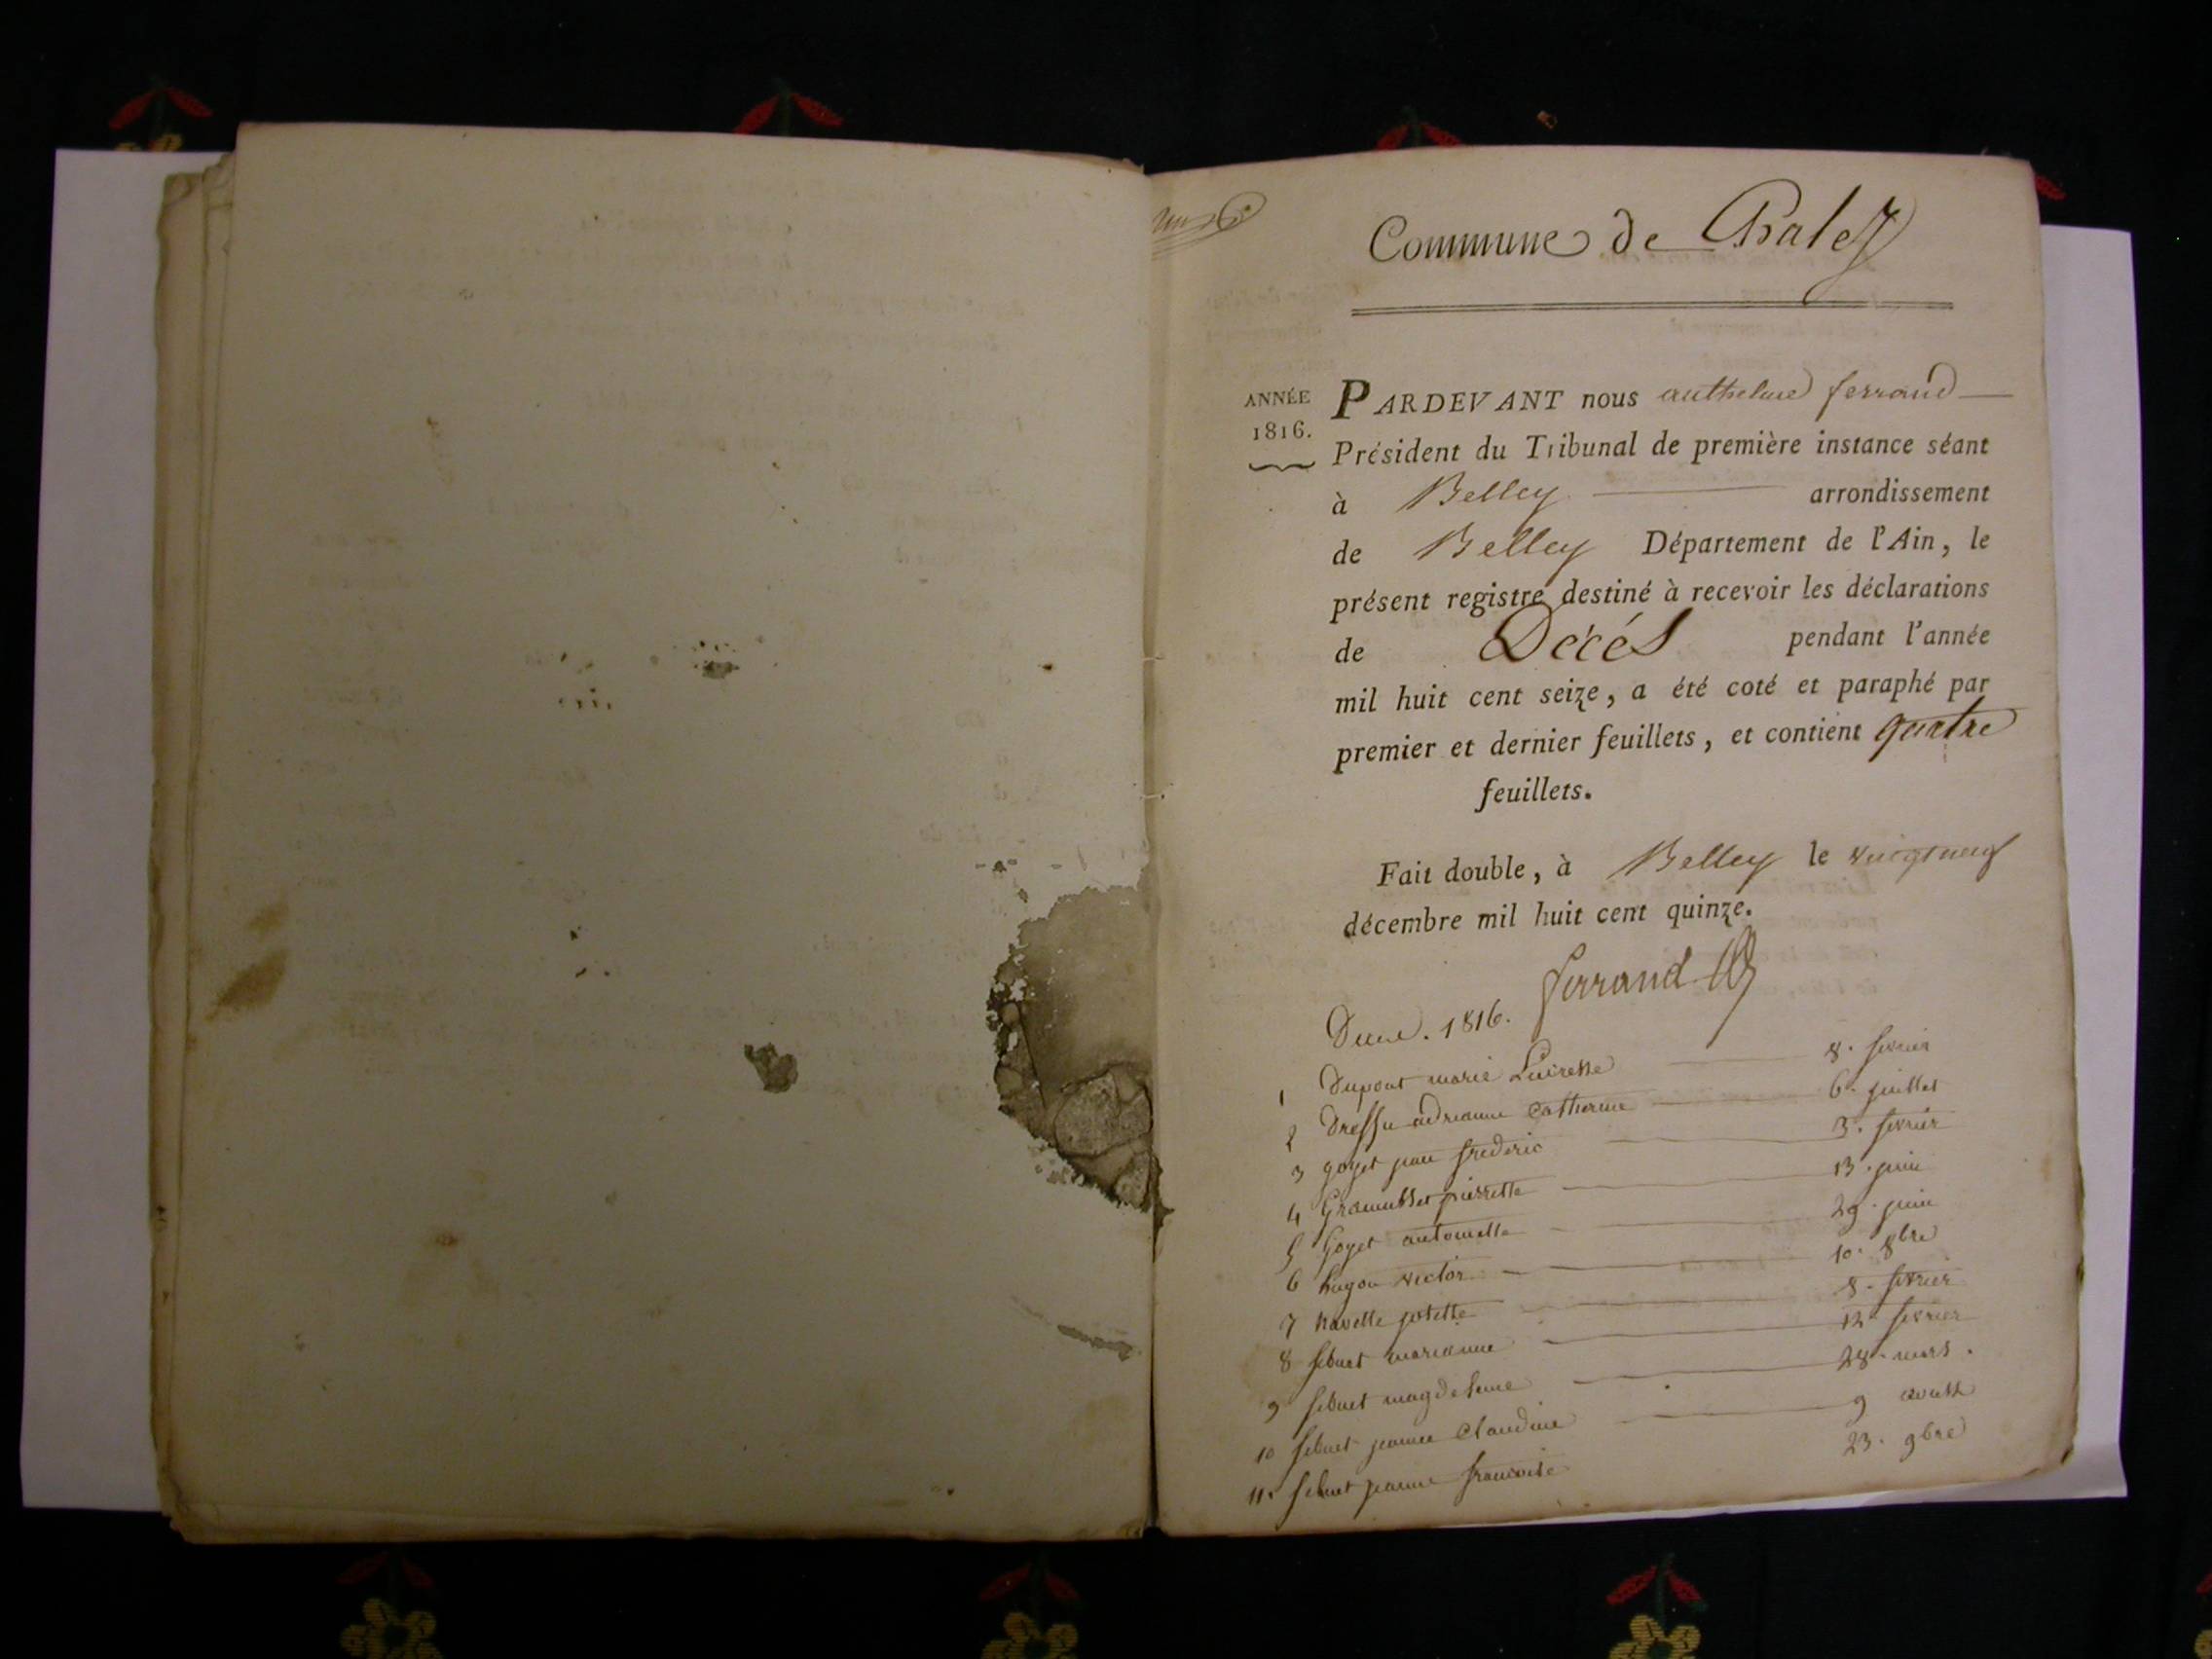 Commune de
ANNÉE
1816.
PARDEVANT nous anthelme ferrand
Président du Tribunal de première instance séant
à Belley arrondissement
de Belley Département de l'Ain, le
présent registre destiné à recevoir les déclarations
de Décés pendant l'année
mil huit cent seize, a été coté et paraphé par
premier et dernier feuillets, et contient quatre
feuillets.
Fait double, à Belley le vingt neuf
décembre mil huit cent quinze.
ferrand
1816.
1 Dupont marie 8. fevrier
2 adrianne Catherine 6. juillet
3 goyet jean frederic 3. fevrier
4 pierrette 13. juin
5 Goyet antoinette 29. juin
6 hugon victor 10. 8bre
7 navette josette 8. fevrier
8 marianne 12 fevrier
9 magdelaine 28. mars.
10 jeanne Claudine 9 aoust
11. jeanne francoise 23. 9bre